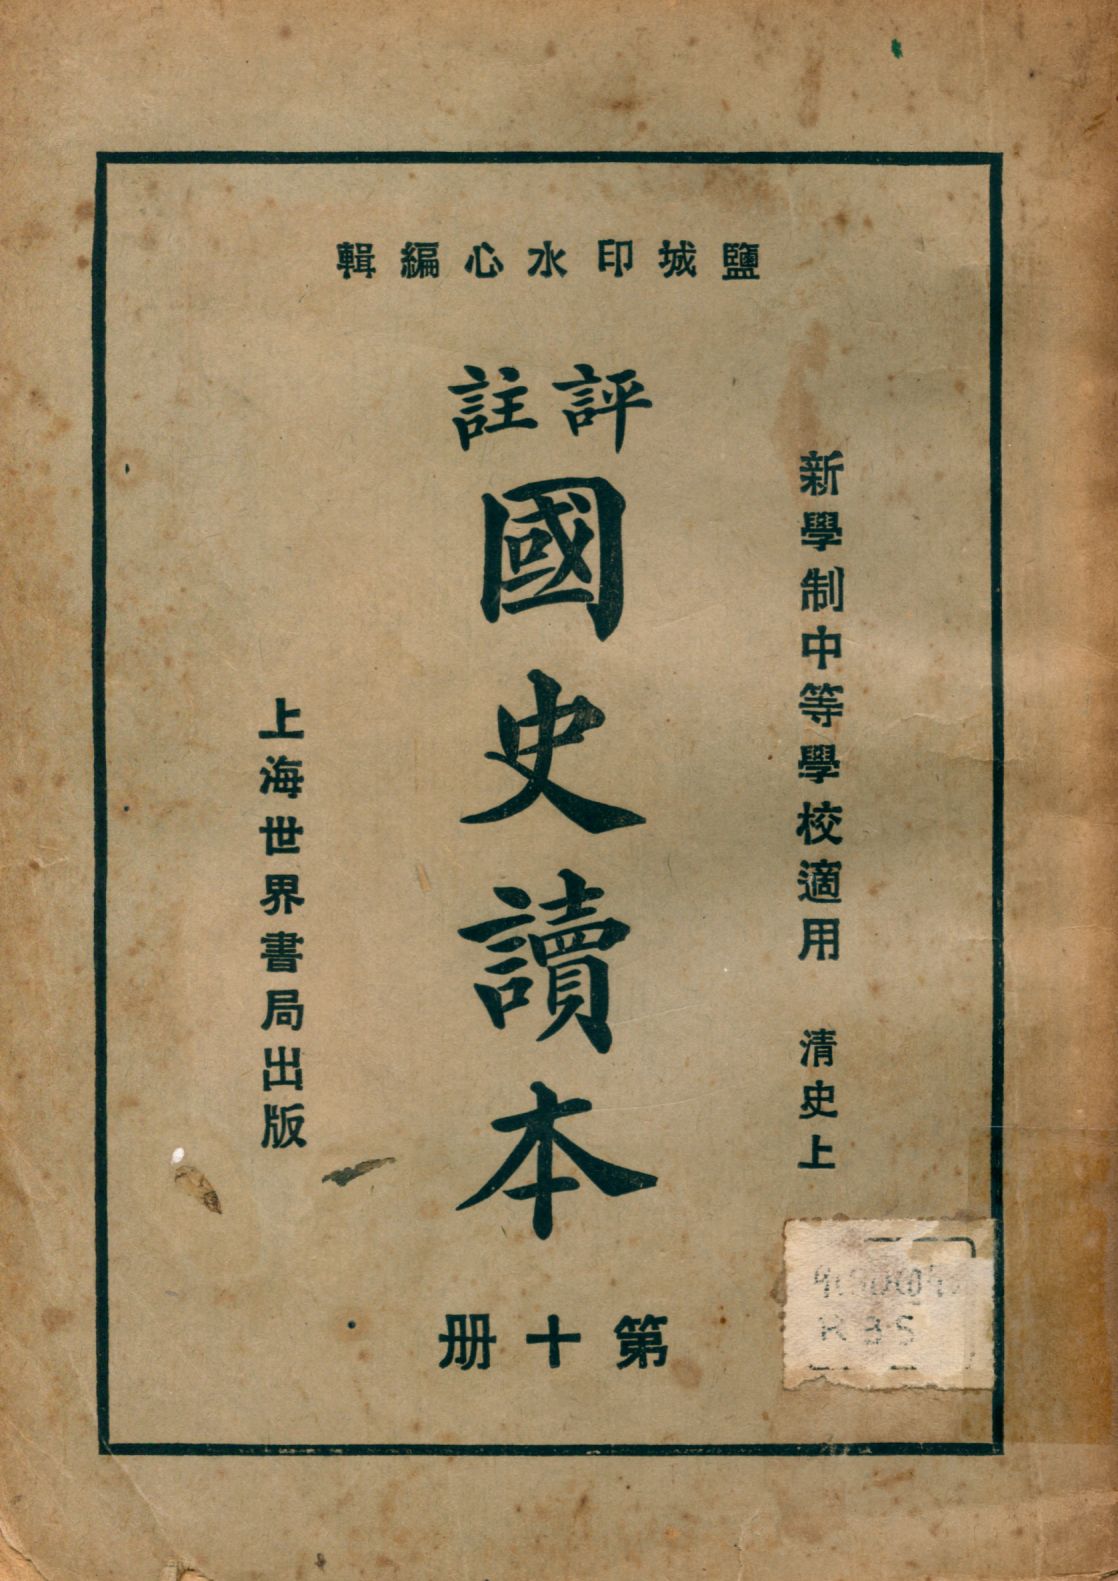 鹽城印水心編輯
新學制中等學校適用 清史上
評註
國史讀本
第十册
上海世界書局出版